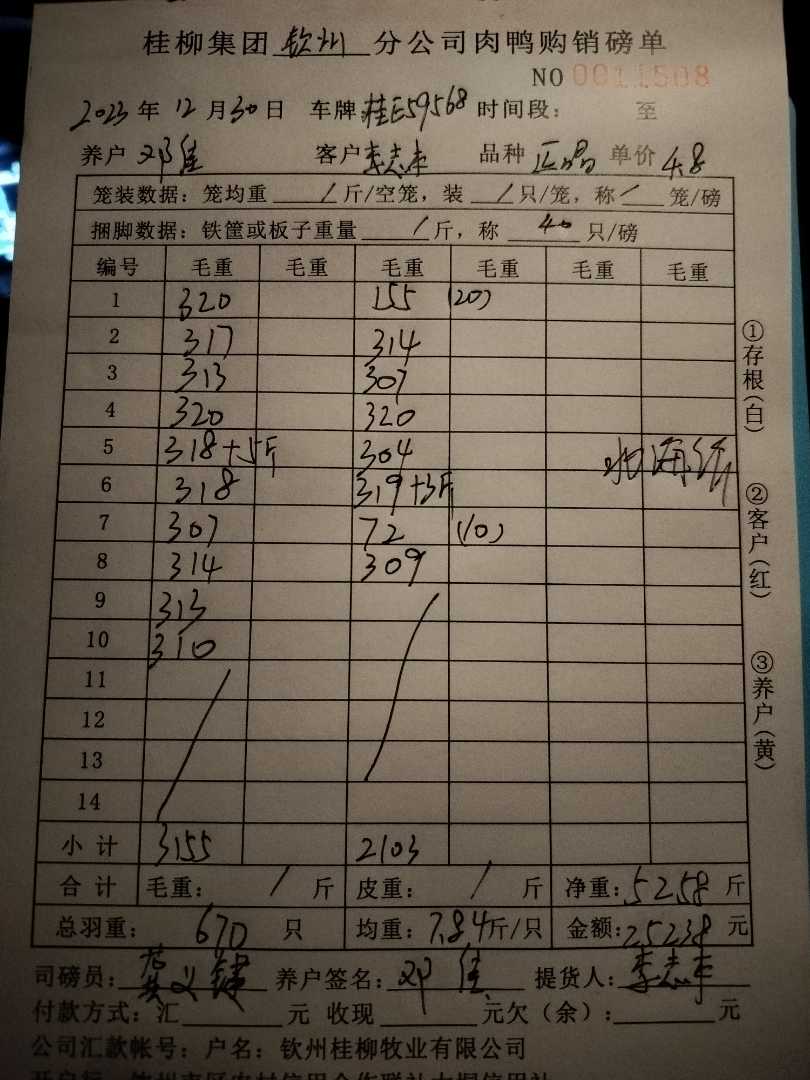 桂柳集团 钦州 分公司肉鸭购销磅单
NO 0011508
2023 年 12 月 30 日 车牌 桂E59568 时间段： 至
养户 邓佳 客户 李志 品种 单价 4.8
笼装数据：笼均重 / 斤/空笼，装 / 只/笼，称 / 笼/磅
捆脚数据：铁筐或板子重量 / 斤，称 40 只/磅
编号 毛重 毛重 毛重 毛重 毛重 毛重
1 320 155 (20)
2 317 314
3 313 307
4 320 320
5 318+5斤 304
6 318 319+3斤
7 307 72 (10)
8 314 309
9 313
10 310
11
12
13
14
小 计 3155 2103
合 计 毛重： / 斤 皮重： / 斤 净重：5258 斤
总羽重： 670 只 均重：7.84 斤/只 金额：25238 元
司磅员： 养户签名：邓佳 提货人：李志
付款方式：汇 元 收现 元欠（余）：
公司汇款帐号：户名：钦州桂柳牧业有限公司
①存根（白）
②客户（红）
③养户（黄）